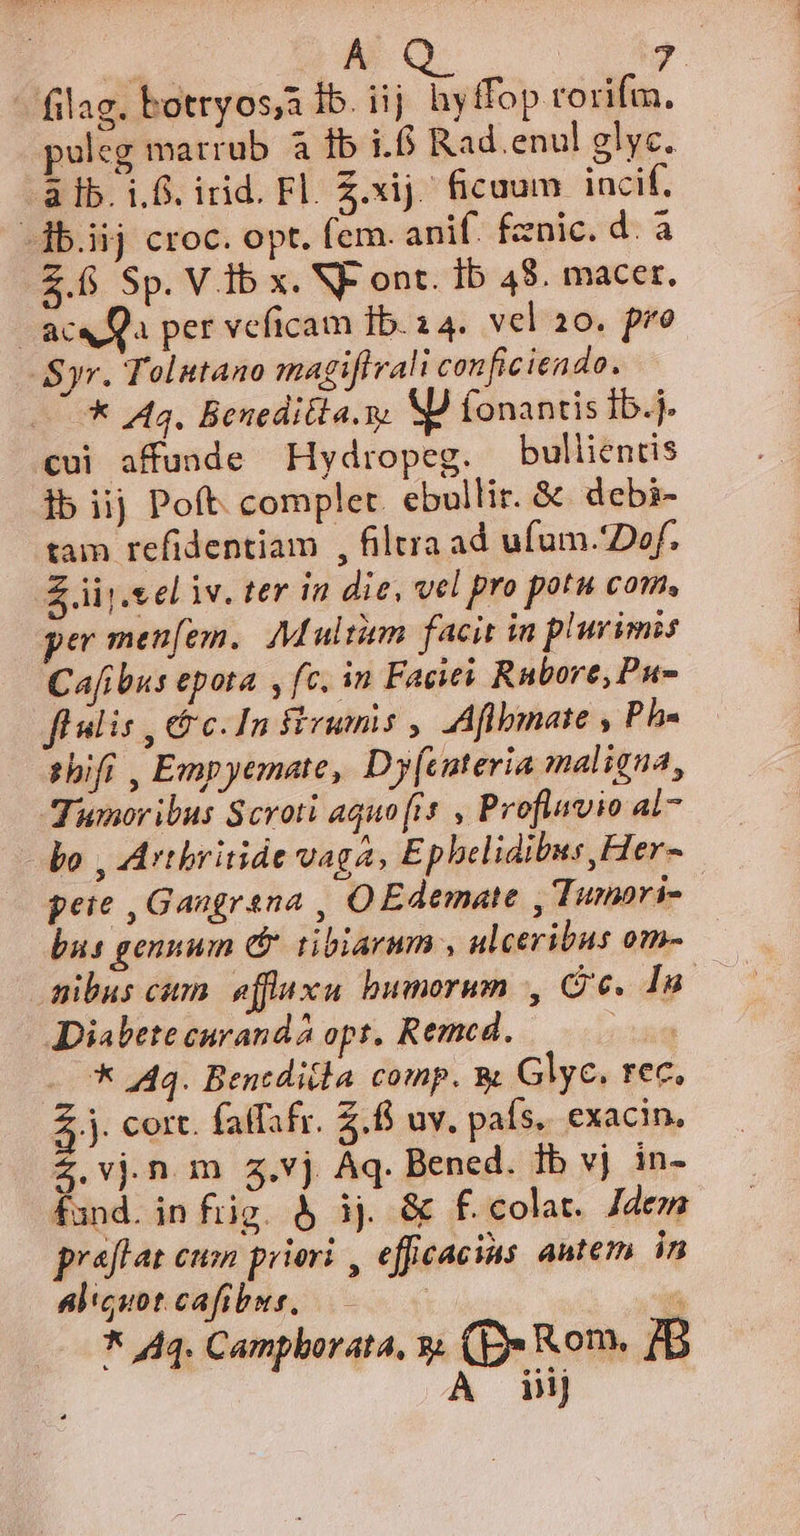 A Q 7
filag. botryos, ā ℔. iij hyſſop roriſm.
puleg marrub ā ℔ i.ß Rad. enul glyc.
ā ℔. i. ß. irid. Fl. ℥.xij. ficuum inciſ.
℔.iij croc. opt. ſem. aniſ. fænic. d. ā
℥.ß Sp. V ℔ x. 🜄 ont. ℔ 48. macer.
per veſicam ℔. 24. vel 20. pro
Syr. Tolutano magiſtrali conficiendo.
* Aq. Benedicta. ꝶ 🜄 ſonantis ℔.j.
cui affunde Hydropeg. bullientis
℔ iij Poſt complet. ebullir. & debi-
tam reſidentiam , filtra ad uſum. Doſ.
℥.iij. vel iv. ter in die, vel pro potu com,
per menſem. Multùm facit in plurimis
Caſibus epota , ſc. in Faciei Rubore, Pu-
ſtulis , &c. In Strumis , Aſthmate , Ph-
thiſi , Empyemate, Dyſenteria maligna,
Tumoribus Scroti aquoſis , Profluvio al-
bo , Arthritide vagâ, Ephelidibus, Her-
pete , Gangræna , OEdemate , Tumori-
bus genuum & tibiarum , ulceribus om-
nibus cum affluxu humorum , &c. In
Diabete curandâ opt. Remed.
* Aq. Benedicta comp. ꝶ Glyc. rec.
℥.j. cort. ſaſſafr. ℥.ß uv. paſs. exacin.
℥.vj. n m ʒ.vj Aq. Bened. ℔ vj in-
fund. in frig. ij. & f. colat. Idem
præſtat cum priori , efficaciùs autem in
aliquot caſibus.
* Aq. Camphorata, ꝶ Rom.
A iiij